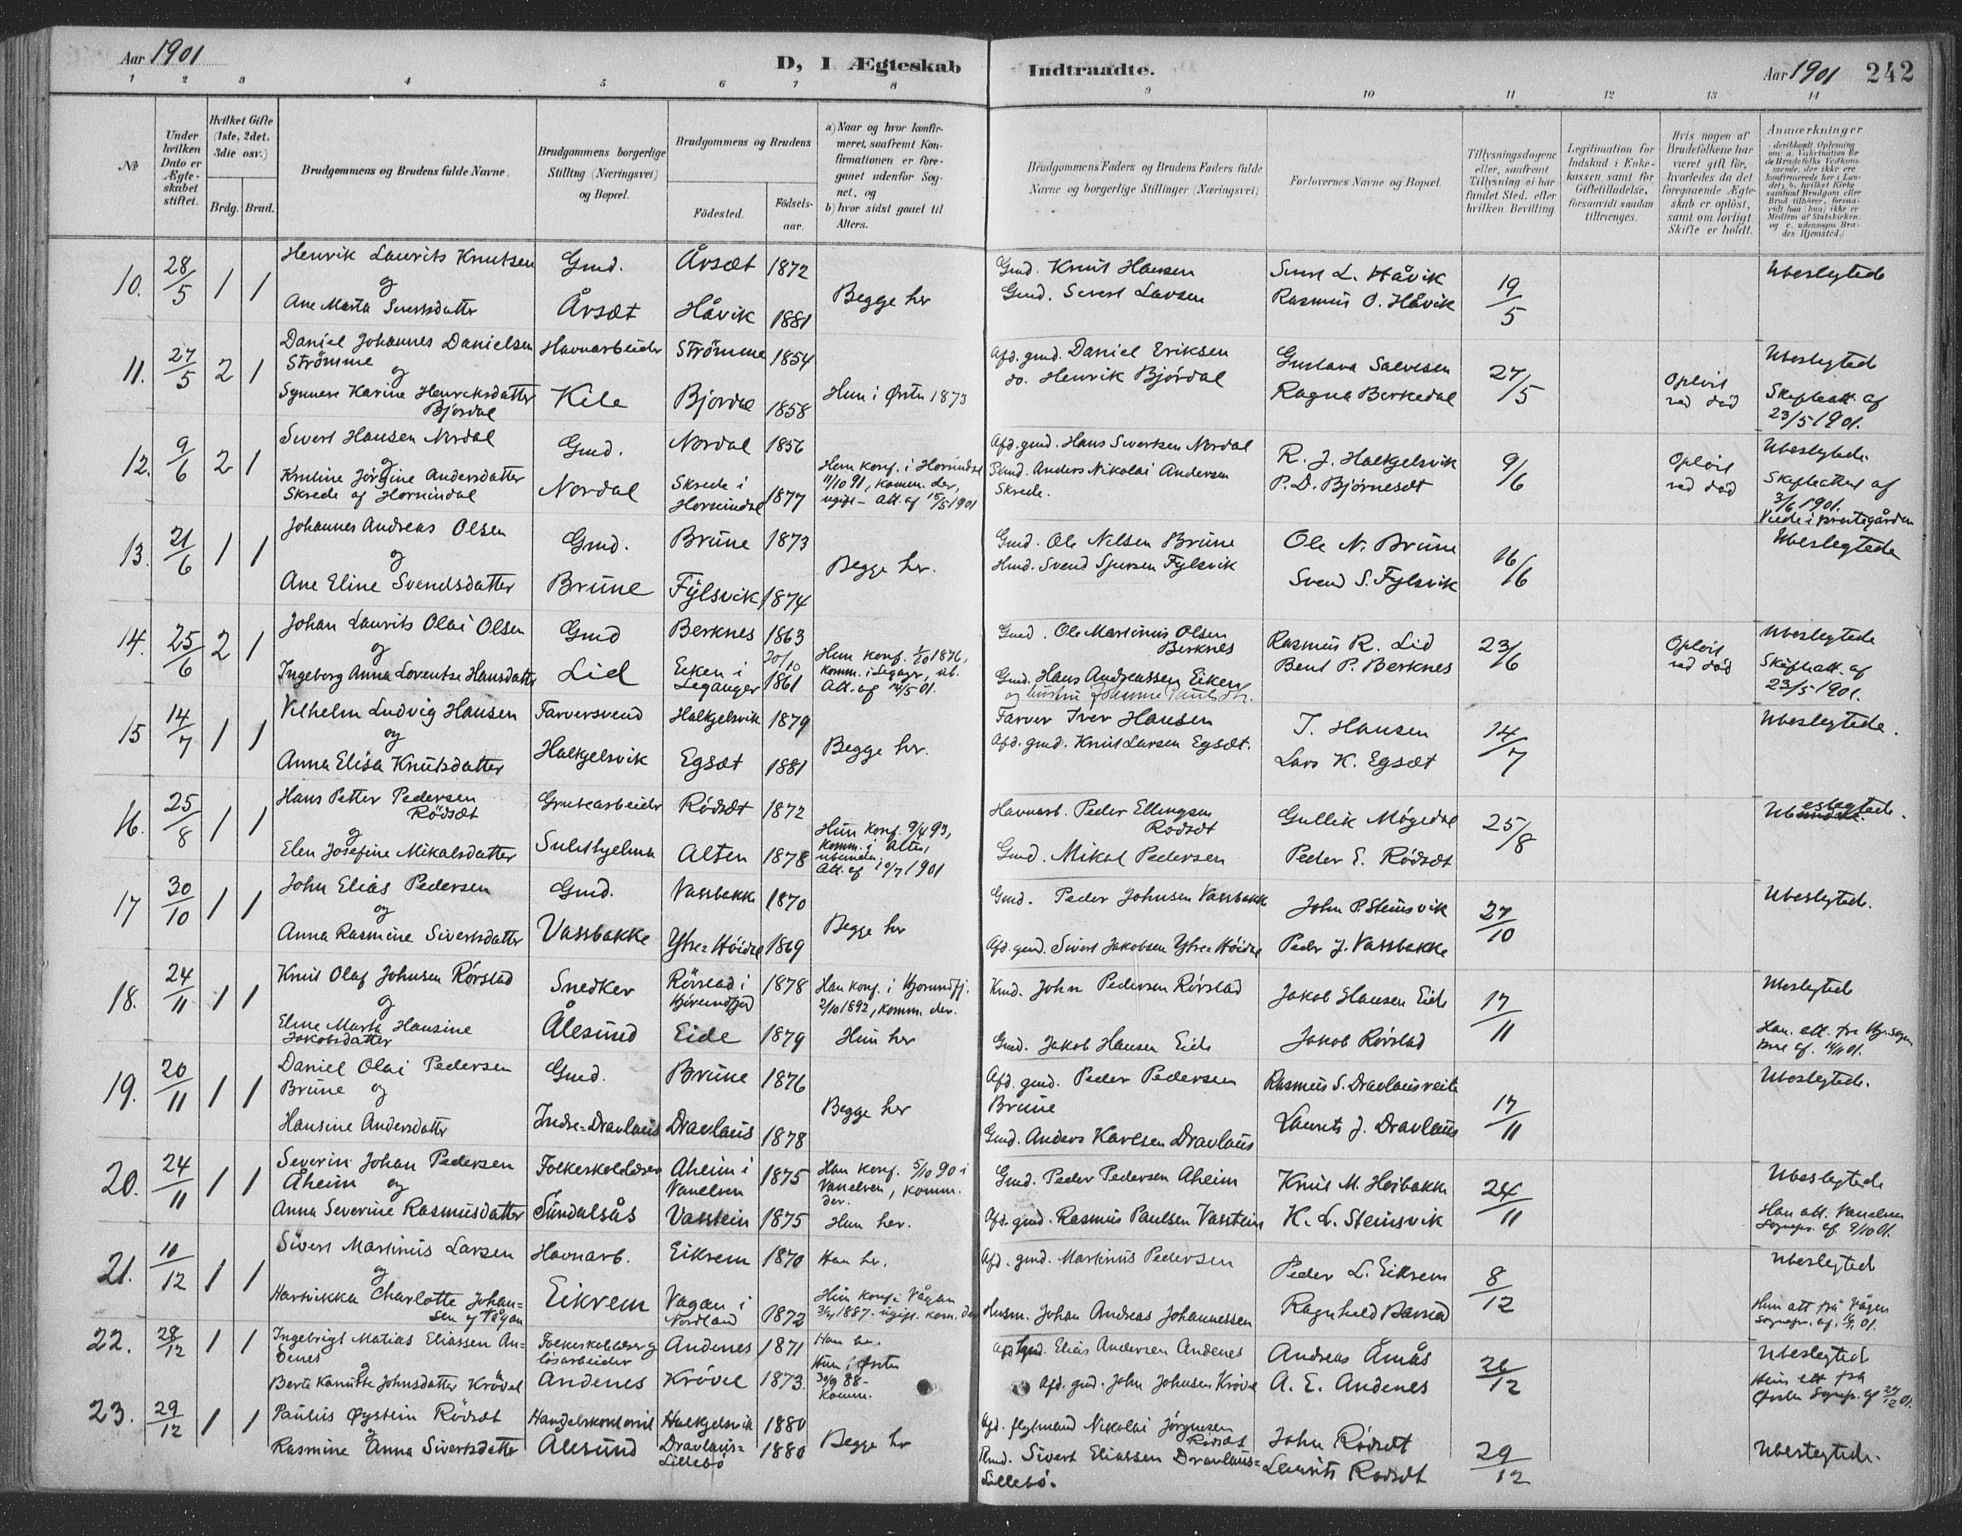 Aar 1901
D, I Ægteskab Indtraadte.
Aar 1901 242
1 2 3 4 5 6 7 8 9 10 11 12 13 14
No
Under hvilken Dato er Ægteskabet stiftet.
Hvilket Gifte (1ste, 2det, 3die osv.)
Brdg. Brud.
Brudgommens og Brudens fulde Navne.
Brudgommens borgerlige Stilling (Næringsvei) og Bopæl.
Brudgommens og Brudens
Fødested. Fødselsaar.
a) Naar og hvor konfirmeret, saafremt Konfirmationen er foregaaet udenfor Sognet, og
b) hvor sidst gaaet til Alters.
Brudgommens Faders og Brudens Faders fulde Navne og borgerlige Stillinger (Næringsvei)
Forlovernes Navne og Bopæl.
Tillysningsdagene eller, saafremt Tillysning ei har fundet Sted, efter hvilken Bevilling
Legitimation for Indskud i Enkekassen samt for Giftetilladelse, forsaavidt saadan tiltrænges.
Hvis nogen af Brudefolkene har været gift før, hvorledes da det foregaaende Ægteskab er opløst, samt om lovligt Skifte er holdt.
Anmerkninger
10. 28/5 1 1 Henrik Laurits Knutsen Gmd. Årsæt 1872 Gmd. Knut Hansen Sivert L. Håvik 19/5 Ubeslegtede
og
Ane Marta Sivertsdatter Årsæt Håvik 1881 Begge her Gmd. Sivert Larsen Rasmus O. Håvik
11. 27/5 2 1 Daniel Johannes Danielsen Havnarbeider Strømme 1854 Afd. gmd. Daniel Eriksen Gustava Salvesen 27/5 Opløst ved død Ubeslegtede
Strømme
og
Synneve Karine Henriksdatter Kile Bjordal 1858 Hun i Ørsten 1873 do. Henrik Bjørdal Ragna Berkedal Skifteatt. af
Bjordal 23/5 1901.
12. 9/6 2 1 Sivert Hansen Nordal Gmd. Nordal 1856 Afd. gmd. Hans Sivertsen Nordal R. J. Halkjelsvik 9/6 Opløst ved død Ubeslegtede
og
Kristine Jørgine Andersdatter Nordal Skrede i 1877 Hun konf. i Hornindal Anders Nikolai Andersen P. D. Bjørnesæt Skifteattest af
Skrede af Hornindal Hornindal 11/10 91, komm. der, Skrede. 3/6 1901.
ugift - Att. af 15/5 1901 Viede i præstegården
13. 21/6 1 1 Johannes Andreas Olsen Gmd. Brune 1873 Gmd. Ole Nilsen Brune Ole N. Brune 16/6 Ubeslegtede
og
Ane Eline Svendsdatter Brune Fylsvik 1874 Begge her. Svend Sjursen Fylsvik Svend S. Fylsvik
14. 25/6 2 1 Johan Laurits Olai Olsen Gmd Berknes 1863 Gmd. Ole Martinus Olsen Rasmus R. Lid 23/6 Opløst ved død Ubeslegtede
og Berknes
Ingeborg Anna Loventse Hansdatter Lid Eiken i 20/10 Hun konf. 1/10 1876, Gmd. Hans Andreassen Eiken Bent P. Berknes Skifteatt. af
Leganger 1861 komm. i Legagr, ub. og hustru Johanne Paulsdtr. 23/5 1901.
Att. af 14/5 01.
15 14/7 1 1 Vilhelm Ludvig Hansen Farversvend Halkjelsvik 1879 Farver Iver Hansen I. Hansen 14/7 Ubeslegtede.
og
Anna Elisa Knutsdatter Halkjelsvik Egsæt 1881 Begge her. Afd. gmd. Knut Larsen Egsæt. Lars K. Egsæt
16. 25/8 1 1 Hans Petter Pedersen Grubearbeider Rødsæt 1872 Havnarb. Peder Ellingsen Gullik Møgedal 25/8 Ubeslegtede.
Rødsæt Rødsæt
og
Elen Josefine Mikalsdatter Sulithjelma Alten 1878 Hun konf. 9/4 93, Gmd. Mikal Pedersen Peder E. Rødsæt
komm. i Alten,
Att. af 10/7 1901
17 30/10 1 1 John Elias Pedersen Gmd. Vassbakke 1870 Gmd. Peder Johnsen Vassbakk John P. Steinsvik 27/10 Ubeslegtede.
og
Anna Rasmine Sivertsdatter Vassbakke Ytre Høidal 1869 Begge her Afd. gmd. Sivert Jakobsen Ytre Høidal Peder J. Vassbakke
18. 24/11 1 1 Knut Olaf Johnsen Rørstad Snedker Rørstad i 1878 Han konf. i Hjørundfj. John Pedersen Rørstad Jakob Hansen Eide 17/11 Ubeslegtede
og Hjørundfjord 2/10 1892, komm. der.
Eline Marta Hansine Ålesund Eide 1879 Hun her Gmd. Jakob Hansen Eide Jakob Rørstad Han. att. fra
Jakobsdatter
19. 20/11 1 1 Daniel Olai Pedersen Gmd. Brune 1876 Afd. gmd. Peder Pedersen Rasmus S. Dravlausreite 17/11 Ubeslegtede.
Brune og Brune
Hansine Andersdatter Indre-Dravlaus Dravlaus 1878 Begge her Gmd. Anders Karlsen Dravlaus Laurits J. Dravlaus
20. 24/11 1 1 Severin Johan Pedersen Folkeskolelærer Aheim i 1875 Han konf. 5/10 90 i Gmd. Peder Pedersen Aheim Knut M. Høibakke 24/11 Ubeslegtede
Åheim og Vanelven Vanelven, komm. der.
Anna Severine Rasmusdatter Sundalsås Vasstein 1875 Hun her. Afd. gmd. Rasmus Paulsen Vasstein K. L. Steinsvik Han att. Vanelven
Sognepr. af 9/10 01.
21. 10/12 1 1 Sivert Martinus Larsen Havnarb. Eikrem 1870 Han her. Afd. gmd. Martinus Pedersen Peder L. Eikrem 8/12 Ubeslegtede
og
Hartvikka Charlotte Johan- Eikrem Vagan i 1872 Hun konf. i Vågan Husm. Johan Andreas Johannessen Ragnhild Barstad Hun att fra Vågan
sen af Vågan Nordland 1887. ugift. kom. der
22. 28/12 1 1 Ingebrigt Matias Eliassen An- Folkeskolelærer og Andenes 1871 Han her. Afd. gmd. Elias Andersen Andenes Andreas Åmås 26/12 Ubeslegtede
denes løsarbeider
og
Berte Kanutte Johnsdatter Krøvel Andenes Krøvel 1873. Hun i Ørsten Afd. gmd. John Johnsen Krøvel A. E. Andenes Hun att fra
30/9 88- komm. Ørsten Sognep. af 27/12 01.
23. 29/12 1 1 Paulus Øystein Rødsæt Handelskontorist Halkjelsvik 1880 Afd. Nikolai Jørgensen John Rødsæt 29/12 Ubeslegtede.
og Rødsæt
Rasmine Anna Sivertsdatter Ålesund Dravlaus- 1880 Begge her Sivert Eliassen Dravlaus- Laurits Rødsæt
Lillebø Lillebø.